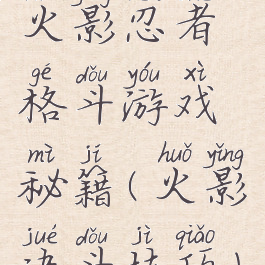 火影忍者
gé dǒu yóu xì
格斗游戏
mì jí huǒ yǐng
秘籍(火影
jué dǒu jì qiǎo
决斗技巧)